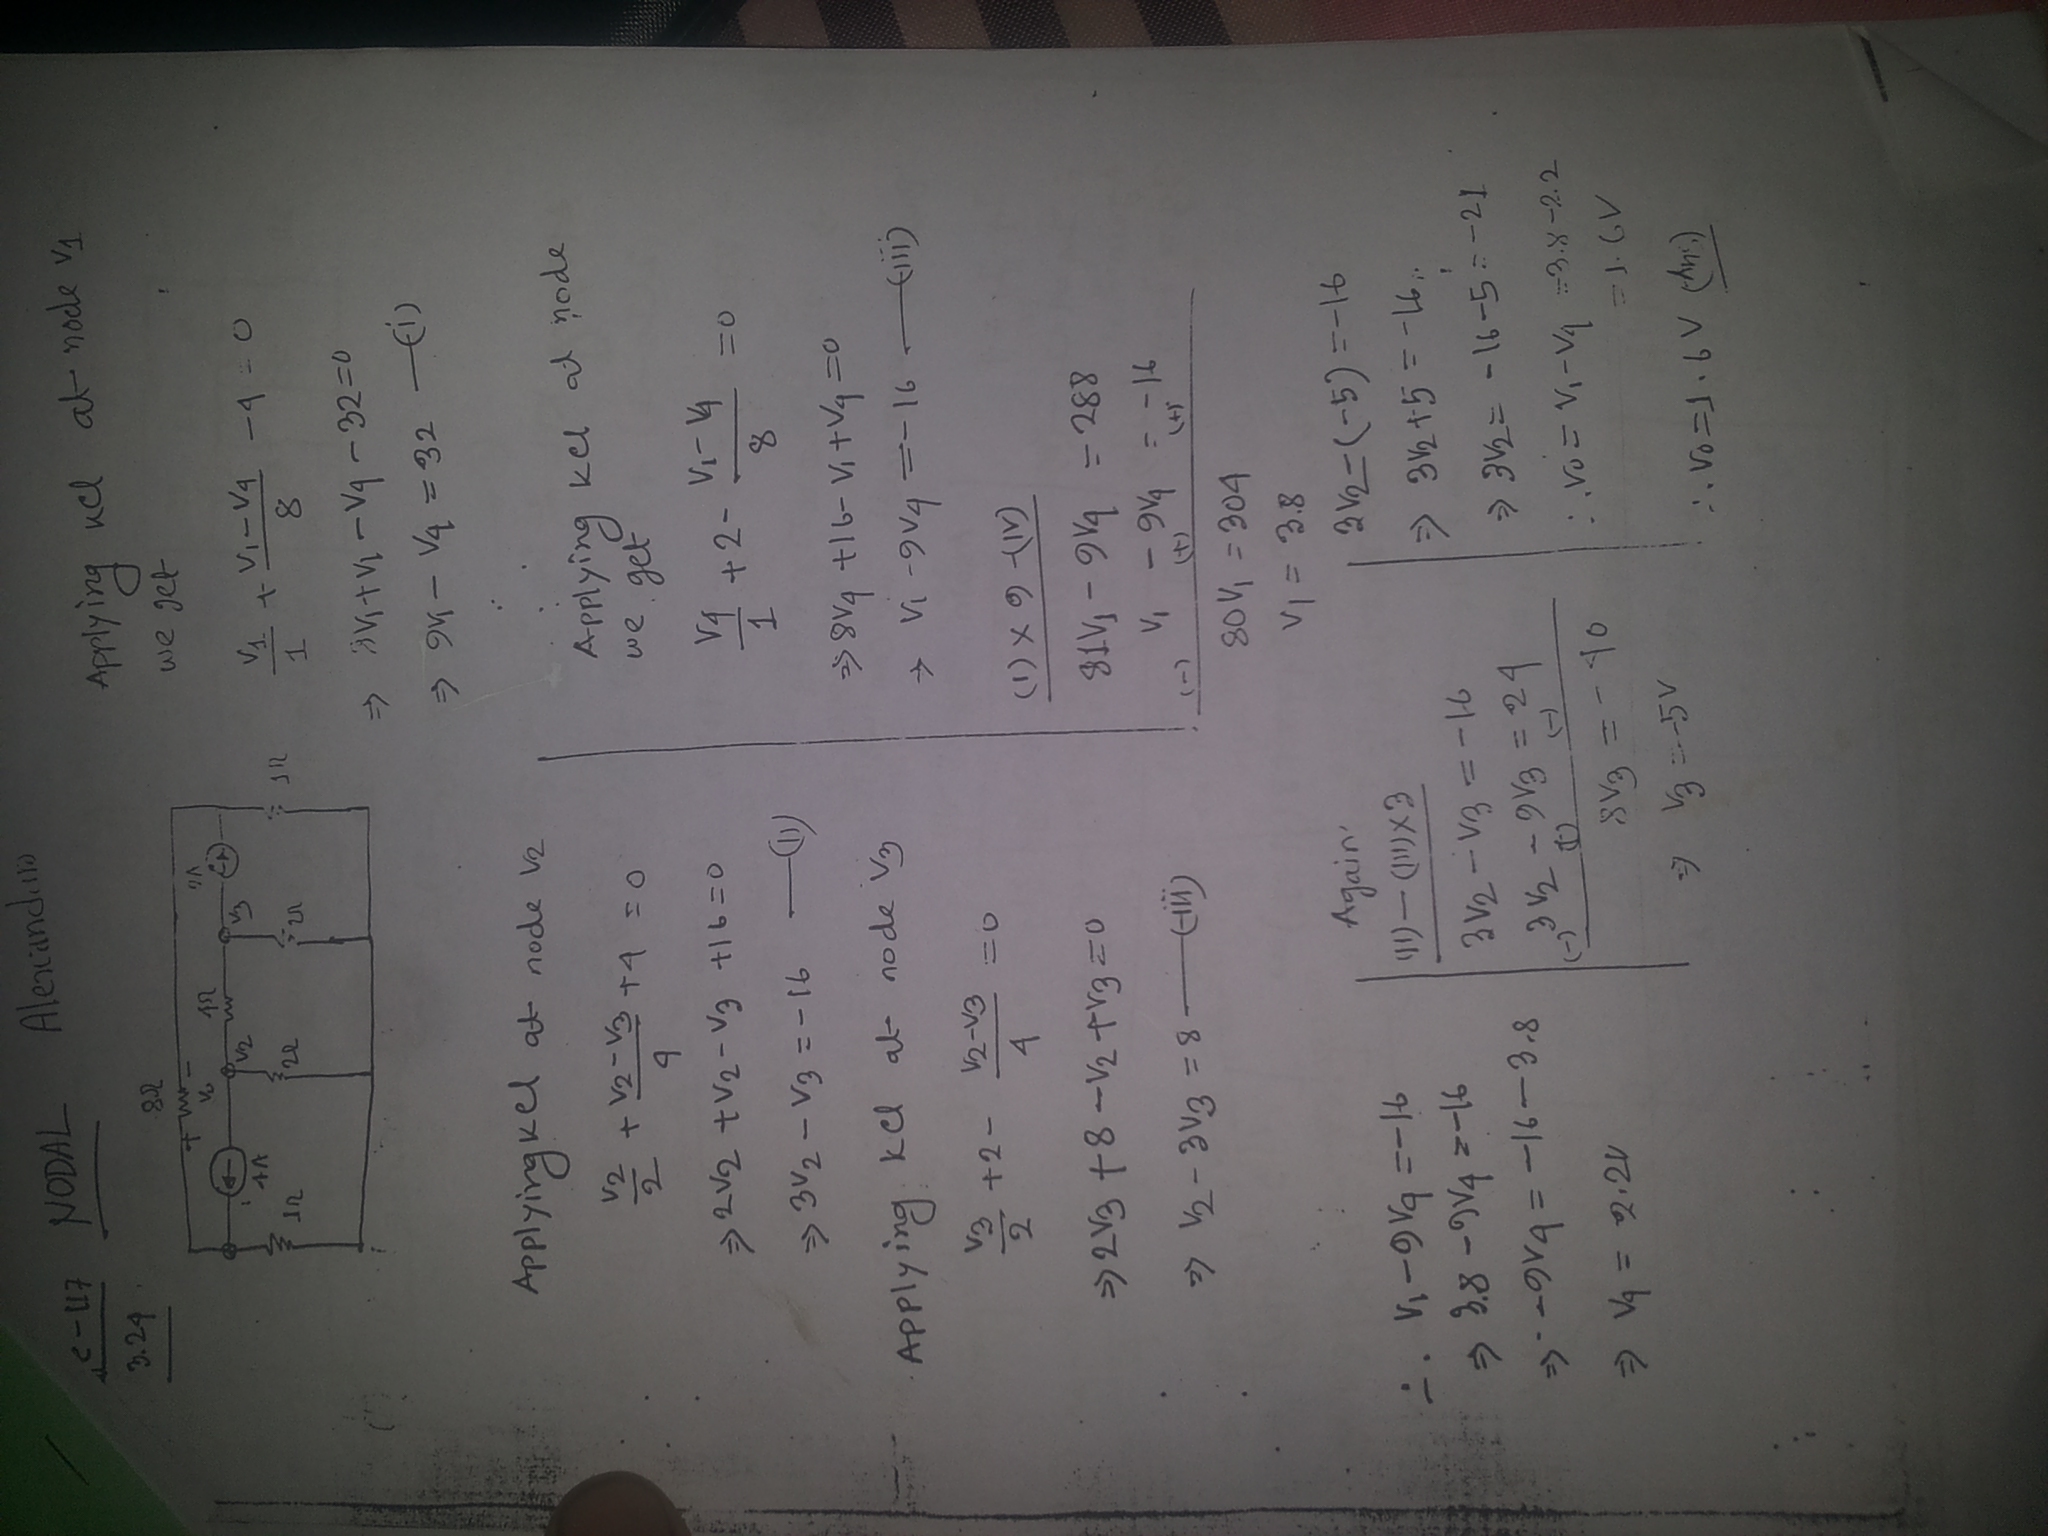 NODAL
3.24
8Ω
+ -
V0
4Ω
2A
V2
V3
4A
1Ω
2Ω
2Ω
1Ω
Applying kcl at node V1
we get
V1/1 + (V1-V4)/8 - 4 = 0
⇒ 8V1+V1-V4-32=0
⇒ 9V1-V4=32 —(i)
Applying kcl at node V2
V2/2 + (V2-V3)/4 + 4 = 0
⇒ 2V2+V2-V3+16=0
⇒ 3V2-V3=-16 —(ii)
Applying kcl at node V3
V3/2 + 2 - (V2-V3)/4 = 0
⇒ 2V3+8-V2+V3=0
⇒ V2-3V3=8 —(iii)
Applying kcl at node
we get
V4/1 + 2 - (V1-V4)/8 = 0
⇒ 8V4+16-V1+V4=0
⇒ V1-9V4=-16 —(iii)
(i)×9-(iv)
81V1-9V4=288
V1-9V4=-16
(-) (+) (+)
80V1=304
V1=3.8
∴ V1-9V4=-16
⇒ 3.8-9V4=-16
⇒ -9V4=-16-3.8
⇒ V4=2.2V
Again
(ii)-(iii)×3
3V2-V3=-16
3V2-9V3=24
(-) (+) (-)
8V3=-40
⇒ V3=-5V
3V2-(-5)=-16
⇒ 3V2+5=-16
⇒ 3V2=-16-5=-21
∴ V0=V1-V4=3.8-2.2
=1.6V
∴ V0=1.6V (Ans.)